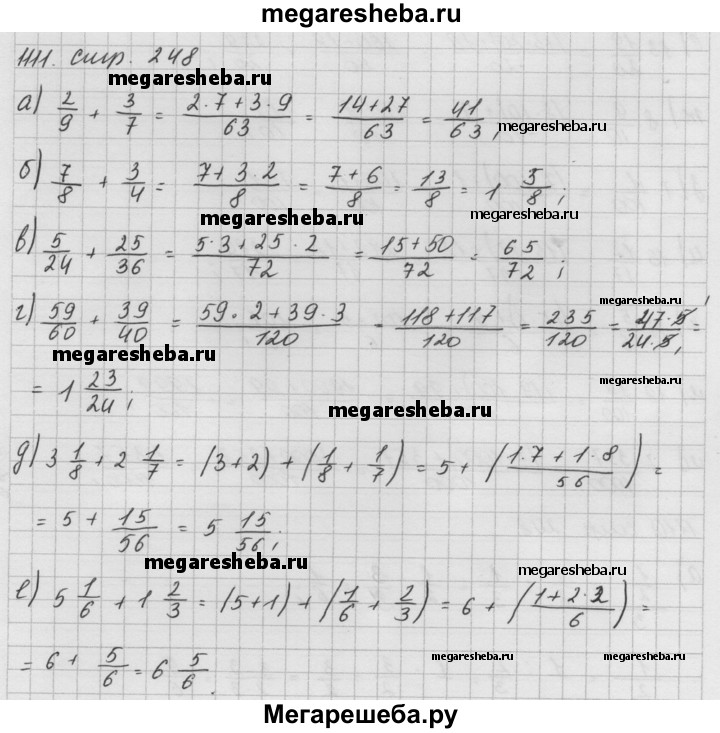 megaresheba.ru
1111. стр. 248
megaresheba.ru
а) 2/9 + 3/7 = (2·7+3·9)/63 = (14+27)/63 = 41/63;
megaresheba.ru
б) 7/8 + 3/4 = (7+3·2)/8 = (7+6)/8 = 13/8 = 1 5/8;
megaresheba.ru megaresheba.ru
в) 5/24 + 25/36 = (5·3+25·2)/72 = (15+50)/72 = 65/72;
megaresheba.ru
г) 59/60 + 39/40 = (59·2+39·3)/120 = (118+117)/120 = 235/120 = (47·5)/(24·5) =
megaresheba.ru
= 1 23/24;
megaresheba.ru
megaresheba.ru
д) 3 1/8 + 2 1/7 = (3+2) + (1/8 + 1/7) = 5 + ((1·7+1·8)/56) =
= 5 + 15/56 = 5 15/56;
megaresheba.ru megaresheba.ru
е) 5 1/6 + 1 2/3 = (5+1) + (1/6 + 2/3) = 6 + ((1+2·2)/6) =
= 6 + 5/6 = 6 5/6.
megaresheba.ru megaresheba.ru
Мегарешеба.ру